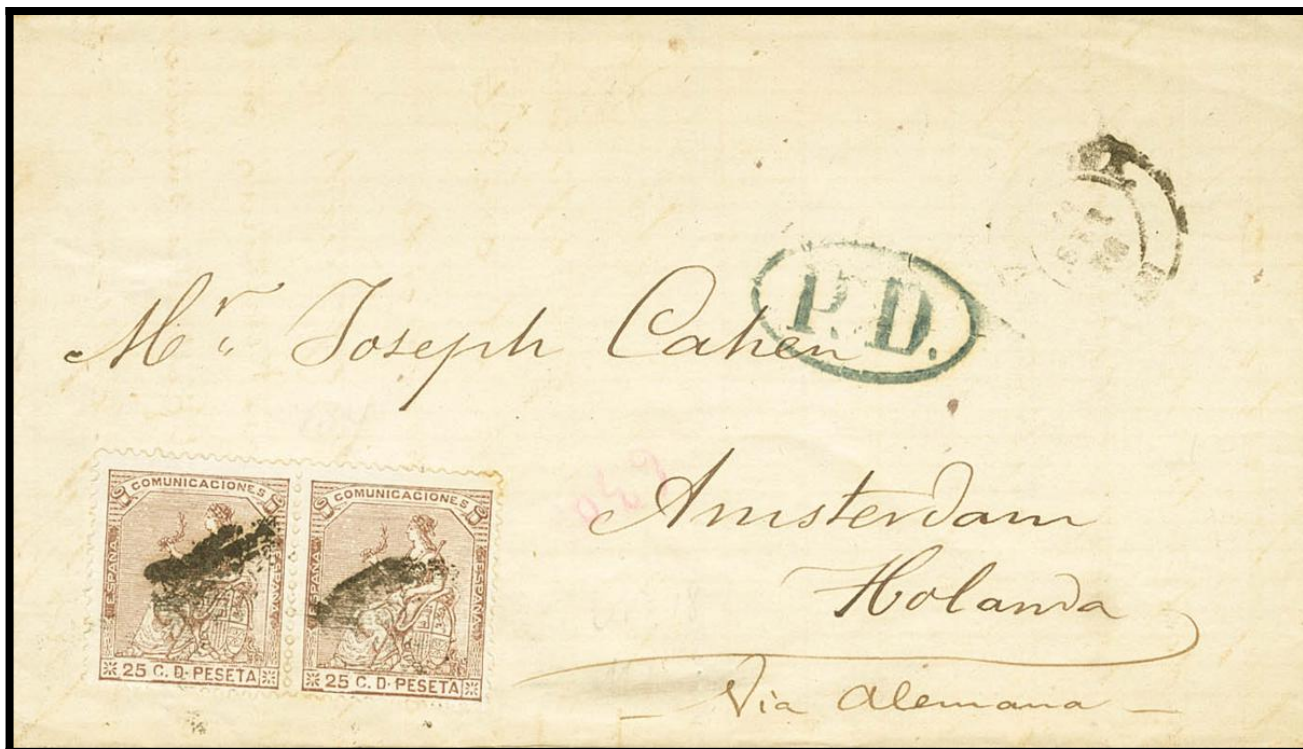 P. D.
Mr. Joseph Cahen
Amsterdam
Holanda
Via Alemana
COMUNICACIONES
ESPAÑA
ESPAÑA
25 C. D. PESETA
COMUNICACIONES
ESPAÑA
ESPAÑA
25 C. D. PESETA